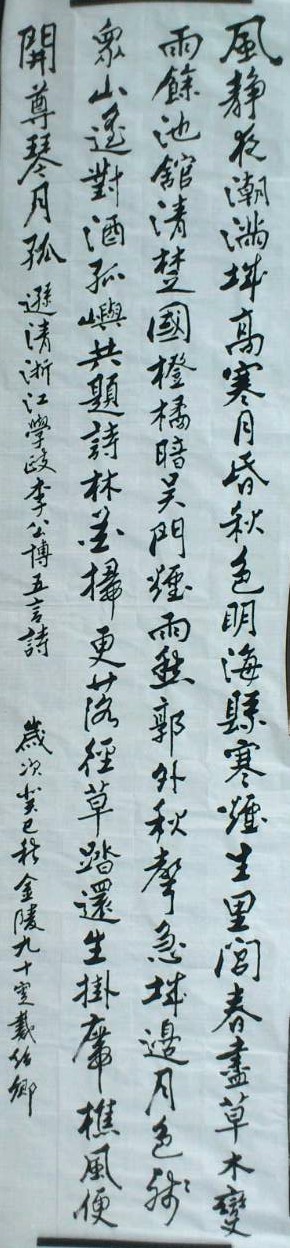 風靜夜潮滿城高寒月昏秋色明海縣寒煙生里閭春盡草木變
雨餘池館清楚國橙橘暗吳門煙雨愁郭外秋聲急城邊月色殘
衆山遙對酒孤嶼共題詩林花掃更落徑草踏還生掛席樵風便
開尊琴月孤 遜清浙江學政李公博五言詩
歲次癸巳秋金陵九十叟戴紹鄉